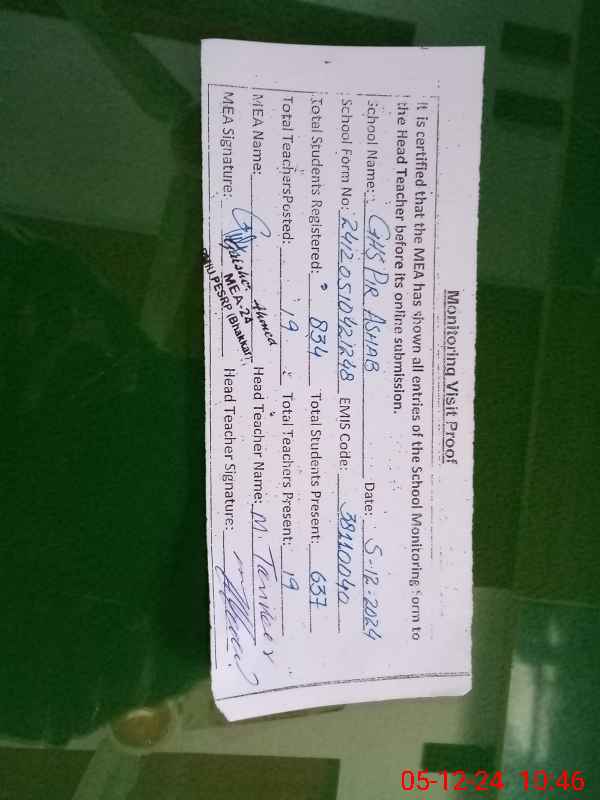 Monitoring Visit Proof
It is certified that the MEA has shown all entries of the School Monitoring Form to
the Head Teacher before its online submission.
School Name: GHS PIR ASHAB Date: 5-12-2024
School Form No: EMIS Code: 38110040
Total Students Registered: 834 Total Students Present: 637
Total TeachersPosted: 19 Total Teachers Present: 19
MEA Name: Ahmed Head Teacher Name: M. Tanveer
MEA Signature: Head Teacher Signature:
MEA-24
PESRP (Bhakkar)
05-12-24 10:46